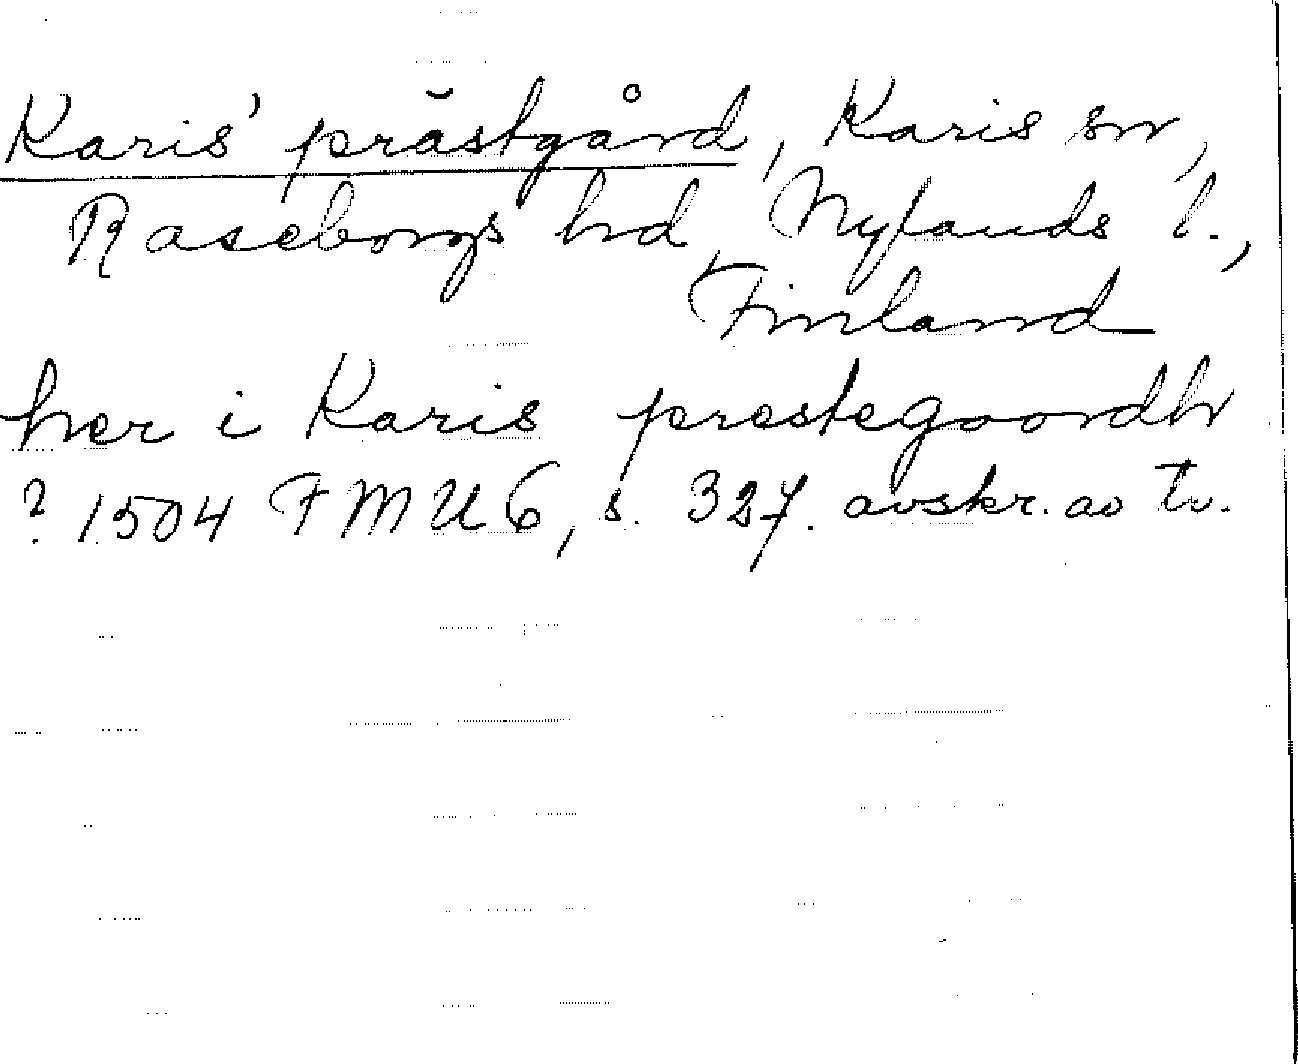 Karis' prästgård, Karis sn,
Raseborgs hd, Nylands l.,
Finland
her i Karis prestegoordh
? 1504 FMU 6, s. 327. avskr. ao tv.